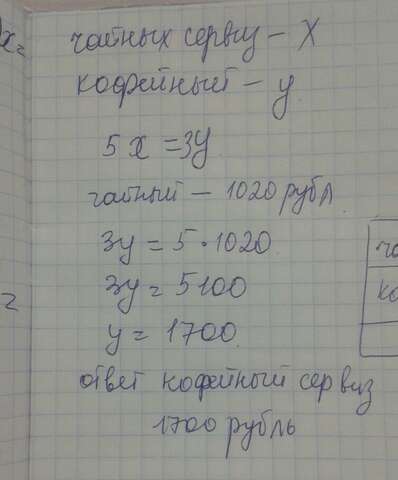 x =
чайных сервиз - X
кофейный - y
5x = 3y
чайный - 1020 рубл
3y = 5·1020
3y = 5100
y = 1700
ответ кофейный сервиз
1700 рубль
ча
ко